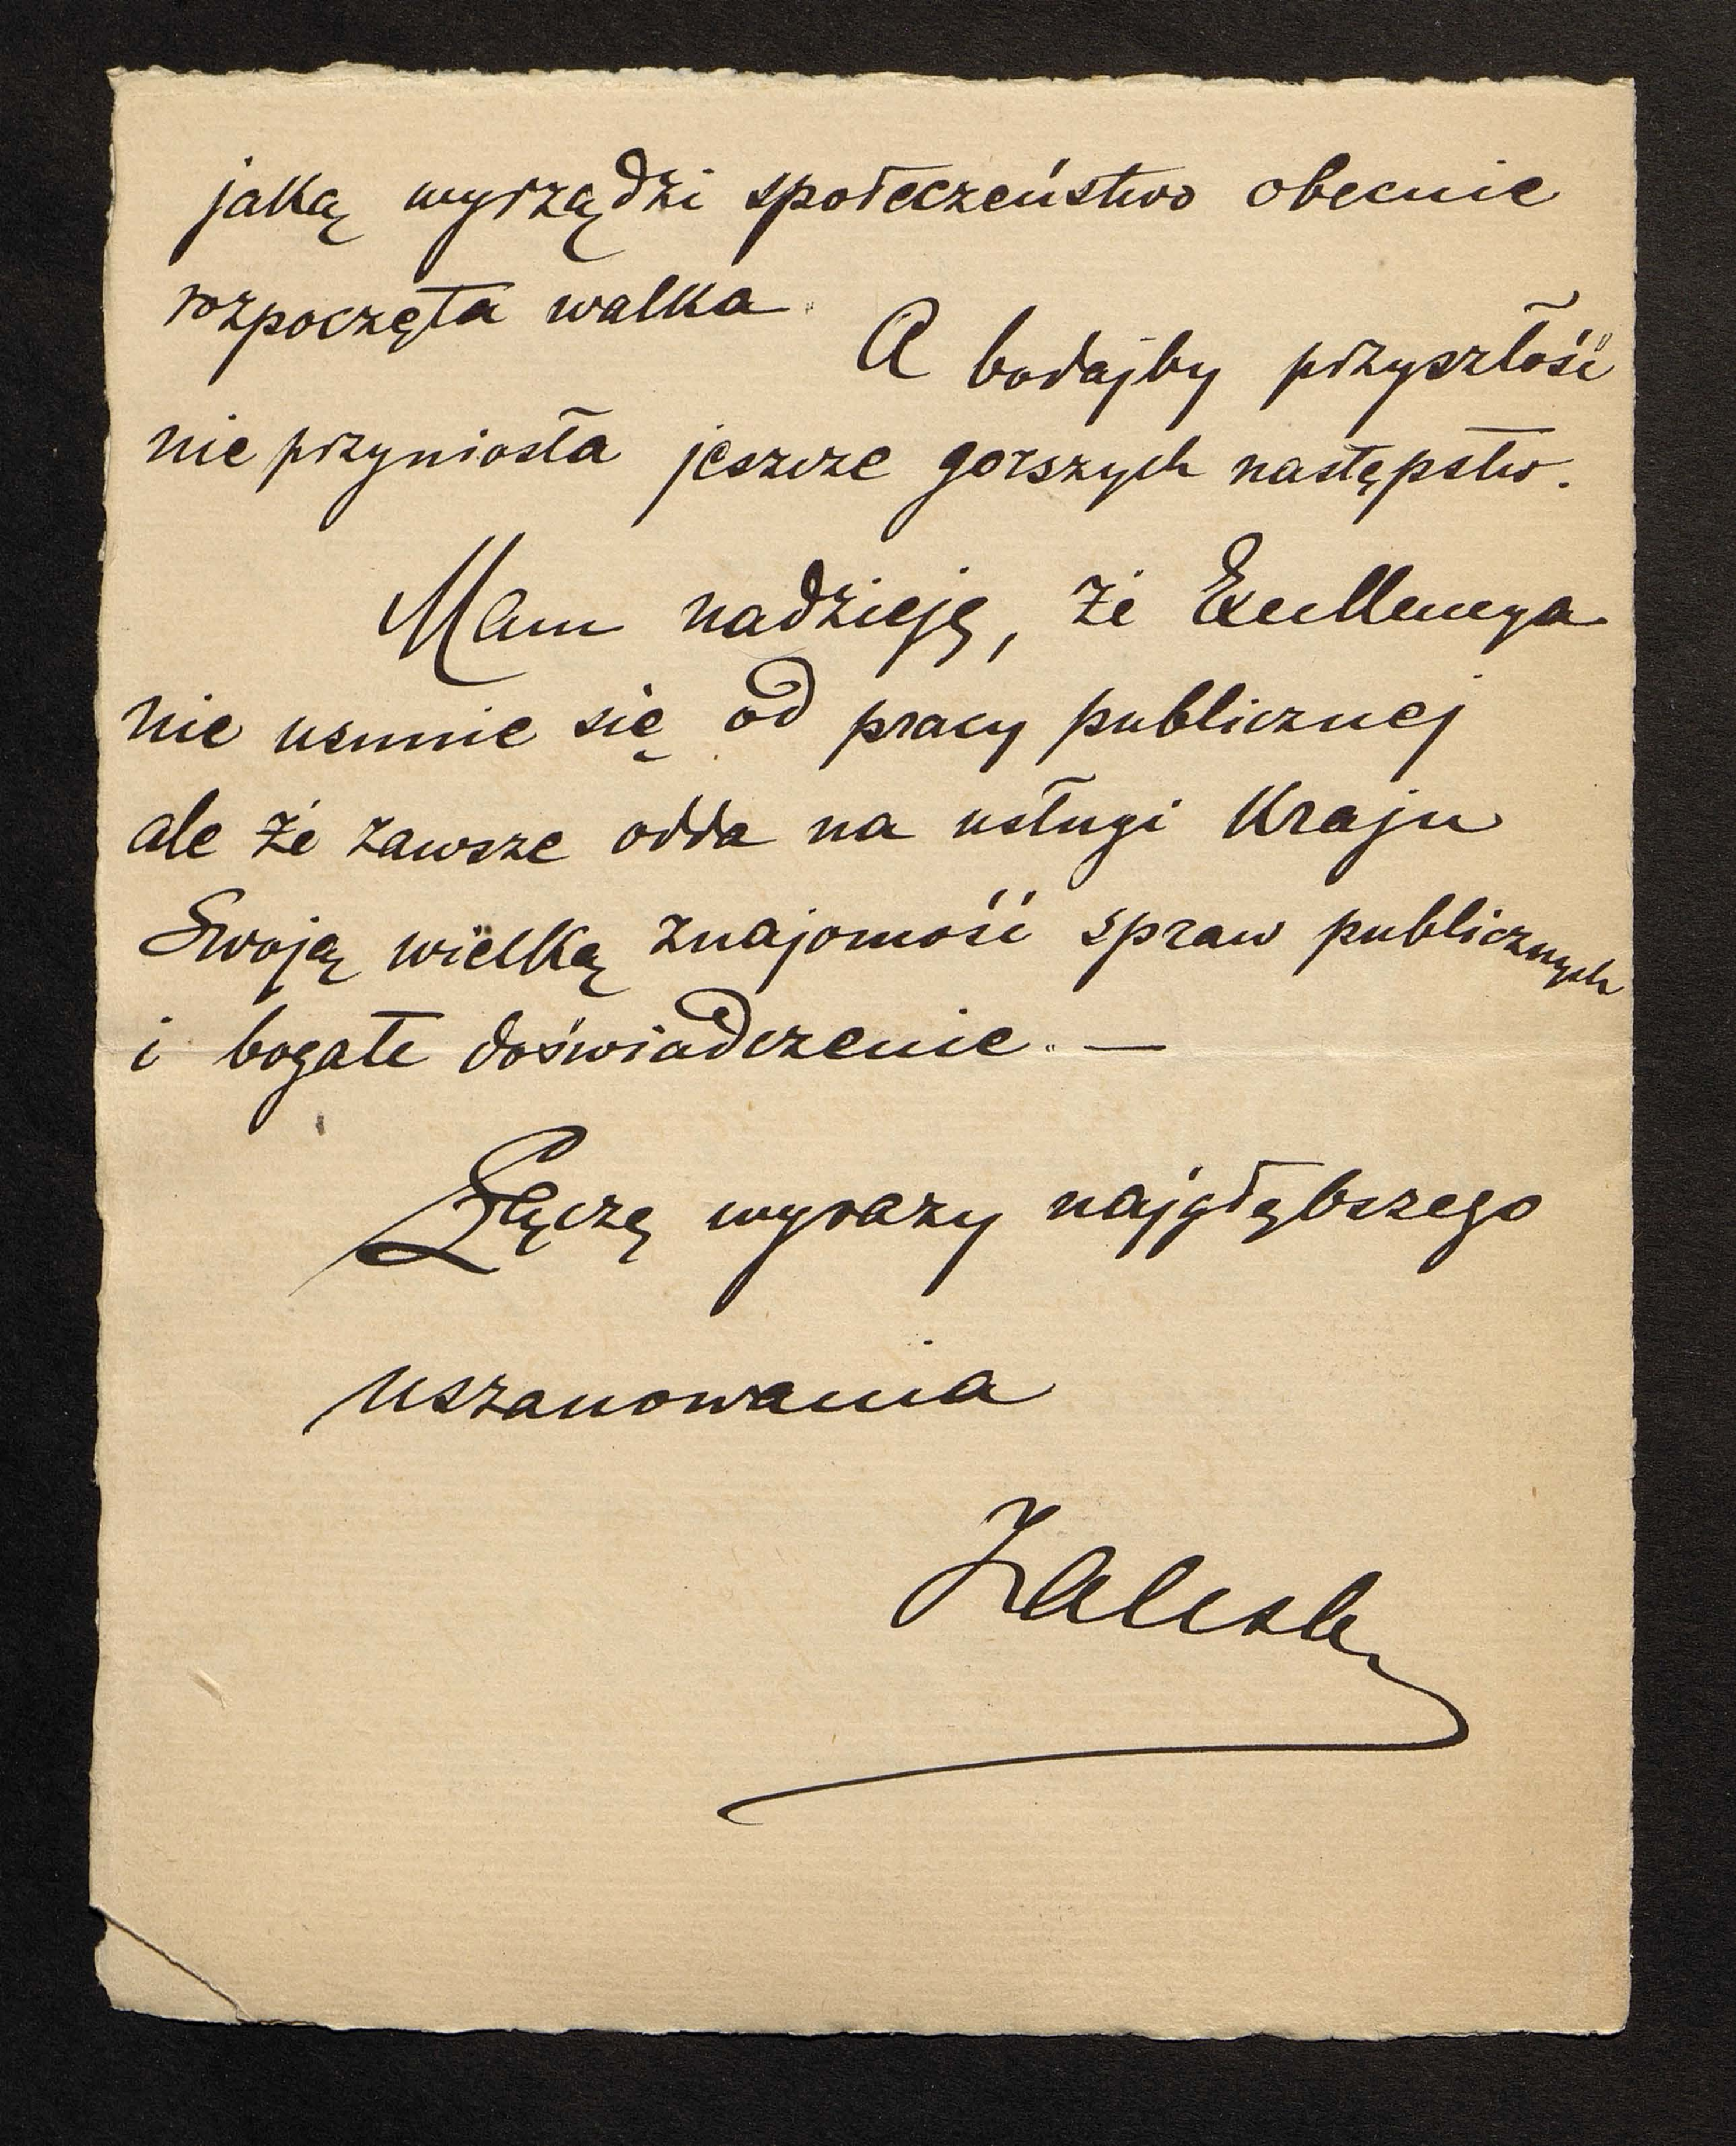 jaką wyrządzi społeczeństwo obecnie
rozpoczęta walka. A bodajby przyszłość
nie przyniosła jeszcze gorszych następstw.
Mam nadzieję, że Excellencya
nie usunie się od pracy publicznej
ale że zawsze odda na usługi Kraju
Swoją wielką znajomość spraw publicznych
i bogate doświadczenie. —
Łączę wyrazy najgłębszego
uszanowania